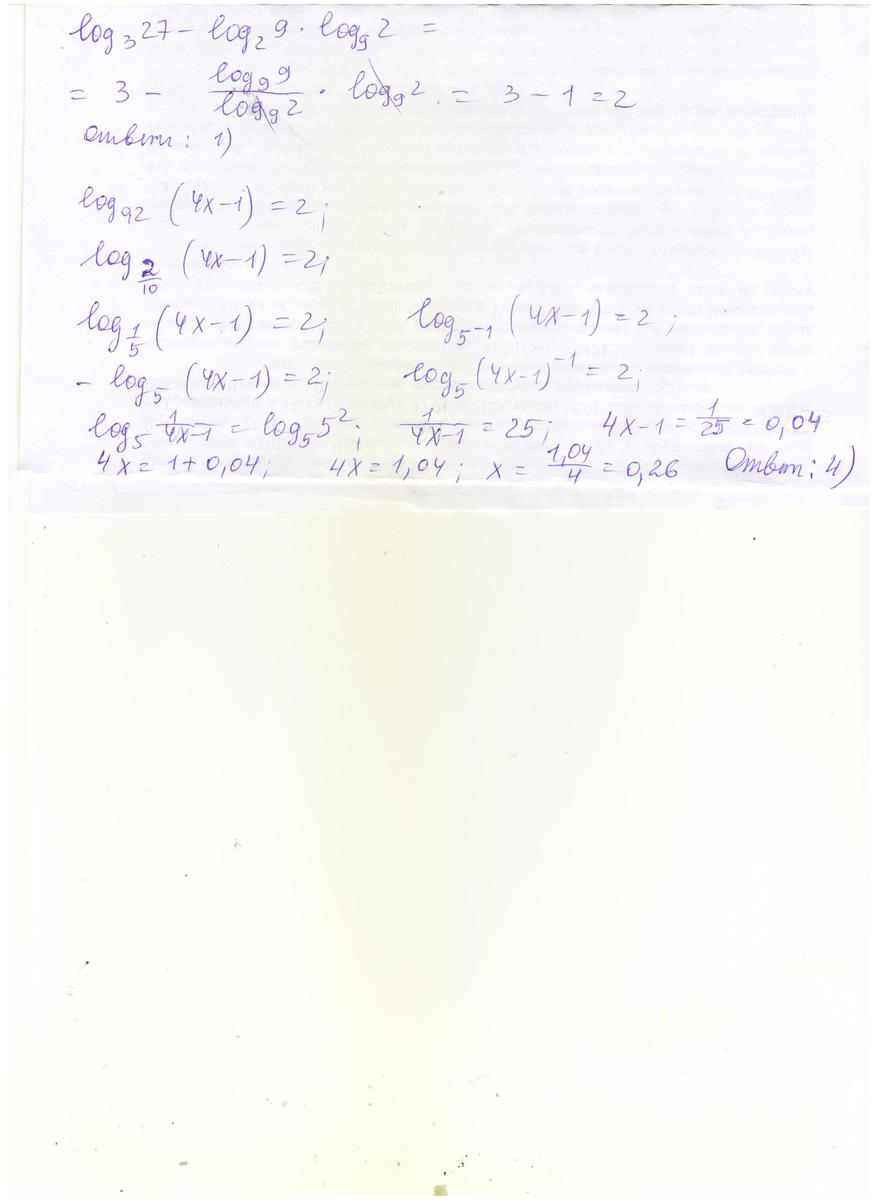 log₃27 − log₂9 · log₉2 =
= 3 − log₉9/log₉2 · log₉2 = 3 − 1 = 2
ответ: 1)
log₀,₂ (4x−1) = 2;
log_{2/10} (4x−1) = 2;
log_{1/5} (4x−1) = 2; log_{5⁻¹} (4x−1) = 2;
− log₅ (4x−1) = 2; log₅ (4x−1)⁻¹ = 2;
log₅ 1/(4x−1) = log₅5²; 1/(4x−1) = 25; 4x−1 = 1/25 = 0,04
4x = 1 + 0,04; 4x = 1,04; x = 1,04/4 = 0,26 Ответ: 4)